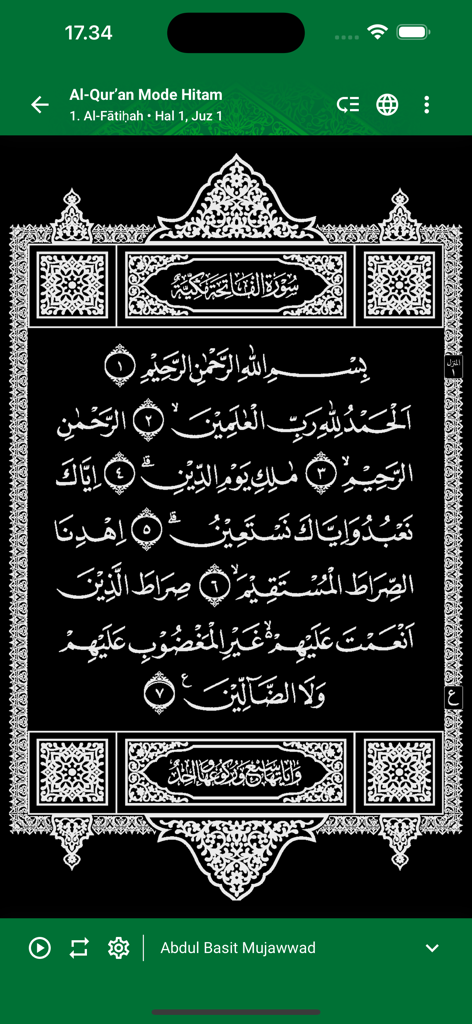 17.34
Al-Qur’an Mode Hitam
1. Al-Fātiḥah • Hal 1, Juz 1
سُوْرَةُ الْفَاتِحَةِ مَكِّيَّةٌ
بِسْمِ اللهِ الرَّحْمٰنِ الرَّحِيْمِ ١
المنزل ١
اَلْحَمْدُ لِلهِ رَبِّ الْعٰلَمِيْنَۙ ٢ الرَّحْمٰنِ
الرَّحِيْمِۙ ٣ مٰلِكِ يَوْمِ الدِّيْنِۗ ٤ اِيَّاكَ
نَعْبُدُ وَاِيَّاكَ نَسْتَعِيْنُۗ ٥ اِهْدِنَا
الصِّرَاطَ الْمُسْتَقِيْمَۙ ٦ صِرَاطَ الَّذِيْنَ
اَنْعَمْتَ عَلَيْهِمْ ەۙ غَيْرِ الْمَغْضُوْبِ عَلَيْهِمْ
وَلَا الضَّاۤلِّيْنَ ع ٧
ع
وَاٰيَاتُهَا سَبْعٌ وَرُكُوْعُهَا وَاحِدٌ
Abdul Basit Mujawwad